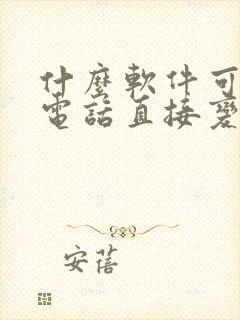 什麼軟件可
電話直接變
安蓓